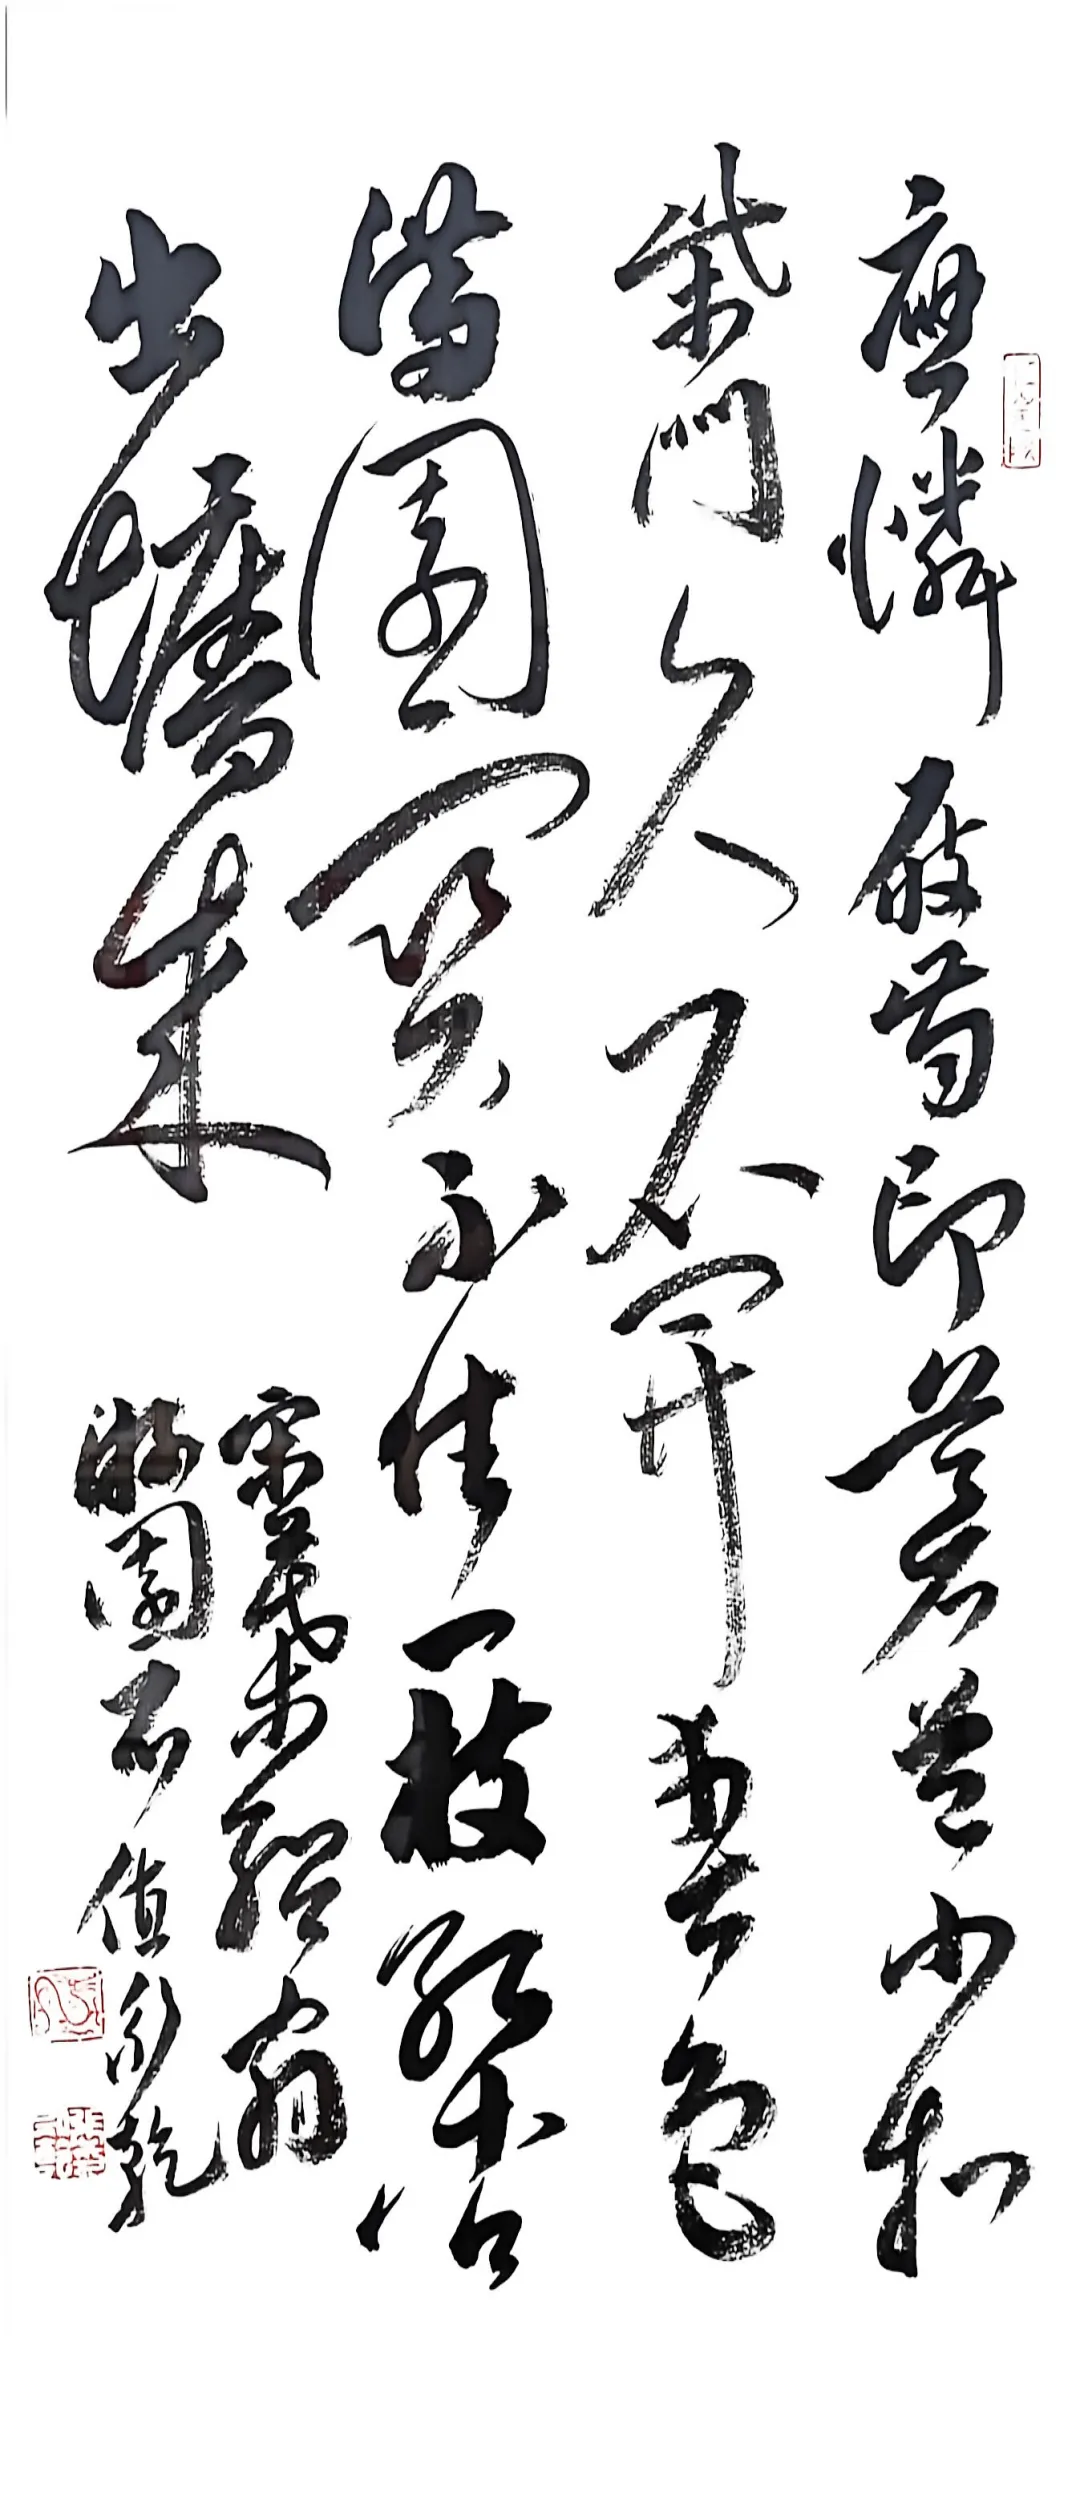 應憐屐齒印蒼苔小扣
柴門久不開春色
滿園關不住一枝紅杏
出牆來
宋葉紹翁
游園不值永乾